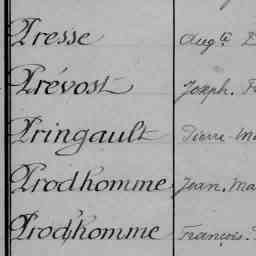 Presse Augte
Prévost Joseph.
Pringault Pierre
Prodhomme Jean.
Prod'homme François.